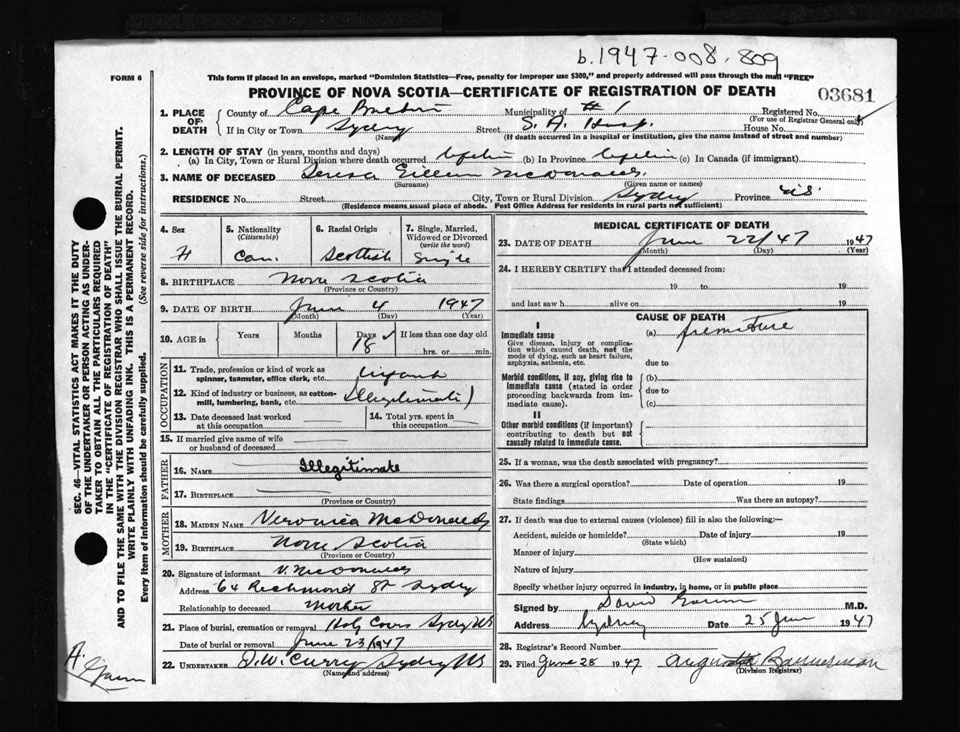 b. 1947-008.809
FORM 6
This form if placed in an envelope, marked "Dominion Statistics—Free, penalty for improper use $300," and properly addressed will pass through the mail "FREE"
PROVINCE OF NOVA SCOTIA—CERTIFICATE OF REGISTRATION OF DEATH
03681
1. PLACE OF DEATH
County of Cape Breton Municipality of # 1 Registered No.
(For use of Registrar General only)
If in City or Town Sydney Street S. A. Hosp. House No.
(Name) (If death occurred in a hospital or institution, give the name instead of street and number)
2. LENGTH OF STAY (in years, months and days)
(a) In City, Town or Rural Division where death occurred Lifetime (b) In Province Lifetime (c) In Canada (if immigrant)
3. NAME OF DECEASED Teresa Eileen McDonald
(Surname) (Given name or names)
RESIDENCE No. Street City, Town or Rural Division Sydney Province N.S.
(Residence means usual place of abode. Post Office Address for residents in rural parts not sufficient)
4. Sex
F
5. Nationality
(Citizenship)
Can.
6. Racial Origin
Scottish
7. Single, Married, Widowed or Divorced
(write the word)
Single
8. BIRTHPLACE Nova Scotia
(Province or Country)
9. DATE OF BIRTH June 4 1947
(Month) (Day) (Year)
10. AGE in Years Months Days If less than one day old
18 hrs. or min.
OCCUPATION
11. Trade, profession or kind of work as spinner, teamster, office clerk, etc. Infant
12. Kind of industry or business, as cotton-mill, lumbering, bank, etc. (Illegitimate)
13. Date deceased last worked at this occupation
14. Total yrs. spent in this occupation
15. If married give name of wife or husband of deceased
FATHER
16. NAME Illegitimate
17. BIRTHPLACE
(Province or Country)
MOTHER
18. MAIDEN NAME Veronica McDonald
19. BIRTHPLACE Nova Scotia
(Province or Country)
20. Signature of informant V. McDonald
Address 64 Richmond St Sydney
Relationship to deceased Mother
21. Place of burial, cremation or removal Holy Cross Sydney NS
Date of burial or removal June 23/1947
22. UNDERTAKER J.W. Curry Sydney NS
(Name and address)
MEDICAL CERTIFICATE OF DEATH
23. DATE OF DEATH June 22/47 1947
(Month) (Day) (Year)
24. I HEREBY CERTIFY that I attended deceased from:
19 to 19
and last saw h alive on 19
CAUSE OF DEATH
I
Immediate cause
Give disease, injury or complication which caused death, not the mode of dying, such as heart failure, asphyxia, asthenia, etc.
(a) premature
due to
Morbid conditions, if any, giving rise to immediate cause (stated in order proceeding backwards from immediate cause).
(b)
due to
(c)
II
Other morbid conditions (if important) contributing to death but not causally related to immediate cause.
25. If a woman, was the death associated with pregnancy?
26. Was there a surgical operation? Date of operation 19
State findings Was there an autopsy?
27. If death was due to external causes (violence) fill in also the following:—
Accident, suicide or homicide? Date of injury 19
(State which)
Manner of injury
(How sustained)
Nature of injury
Specify whether injury occurred in industry, in home, or in public place
Signed by David M.D.
Address Sydney Date 25 June 1947
28. Registrar's Record Number
29. Filed June 28 1947 Augusta Bannerman
(Division Registrar)
SEC. 46—VITAL STATISTICS ACT MAKES IT THE DUTY
OF THE UNDERTAKER OR PERSON ACTING AS UNDERTAKER TO OBTAIN ALL THE PARTICULARS REQUIRED
IN THE "CERTIFICATE OF REGISTRATION OF DEATH"
AND TO FILE THE SAME WITH THE DIVISION REGISTRAR WHO SHALL ISSUE THE BURIAL PERMIT.
WRITE PLAINLY WITH UNFADING INK. THIS IS A PERMANENT RECORD.
Every item of information should be carefully supplied. (See reverse side for instructions.)